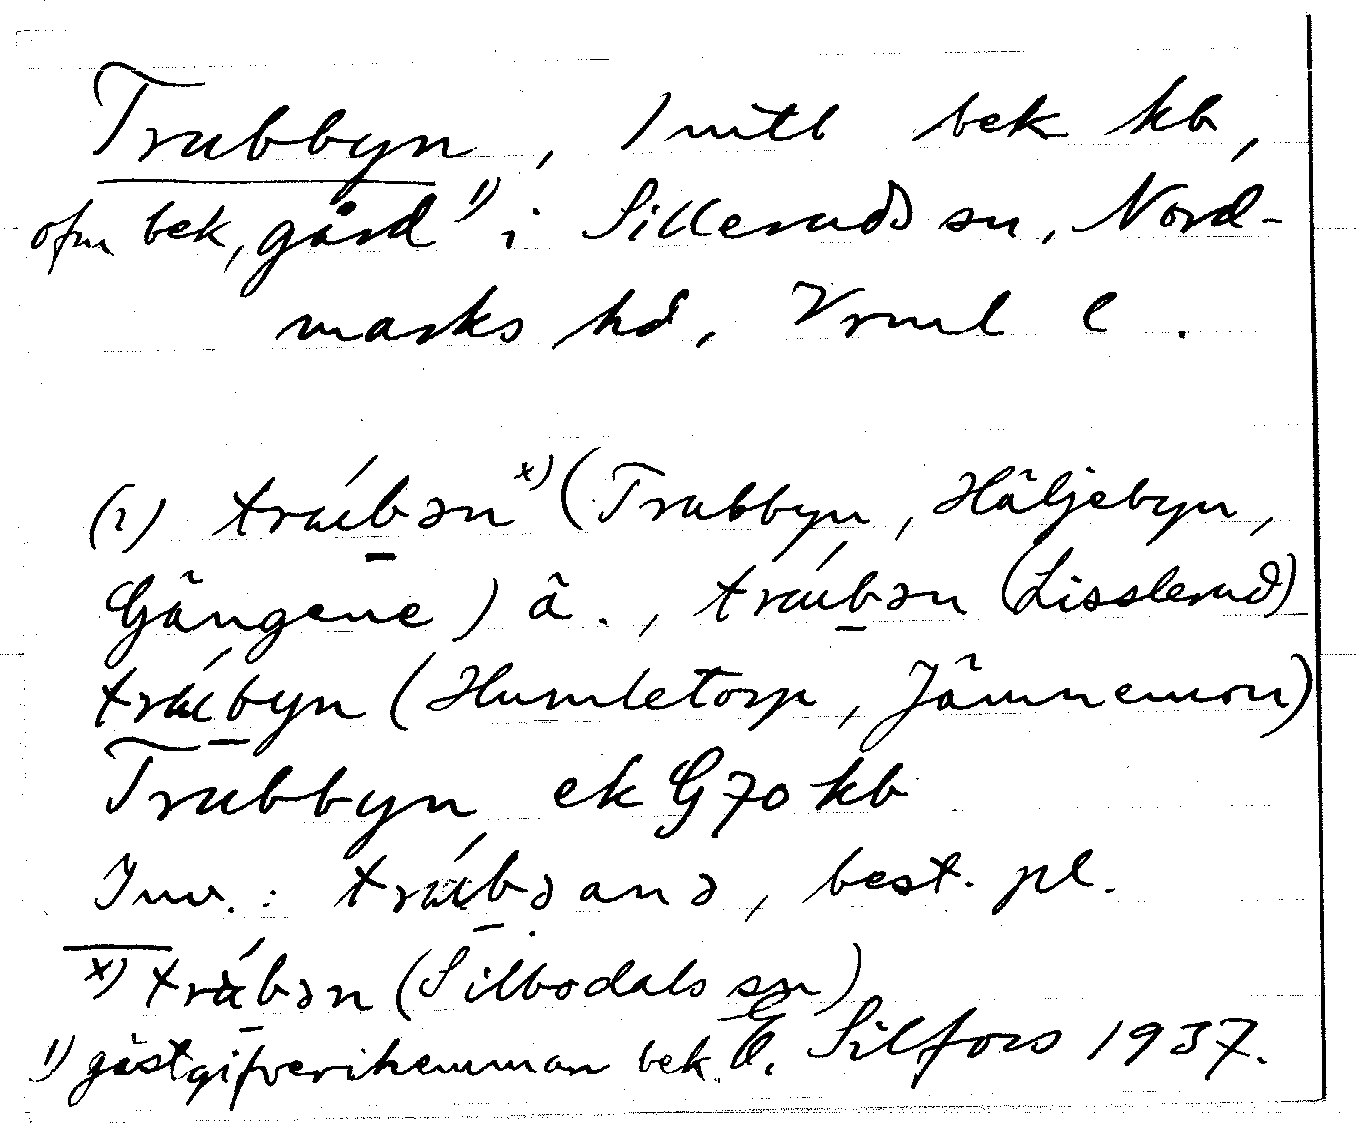 Trubbyn, 1 mtl bek kb,
ofm bek, gård 1) i Silleruds sn, Nord-
marks hd, Vrml l.
(i) tráubən x) (Trubbyn, Häljebyn,
Gängene) ä., tráubən (Lisslerud)
tráubyn (Humletorp, Jämnemon)
Trubbyn ek G 70 kb
Inv.: tráubəanə, best. pl.
x) tráubən (Silbodals sn)
1) gästgifverihemman bek. E. Silfors 1937.